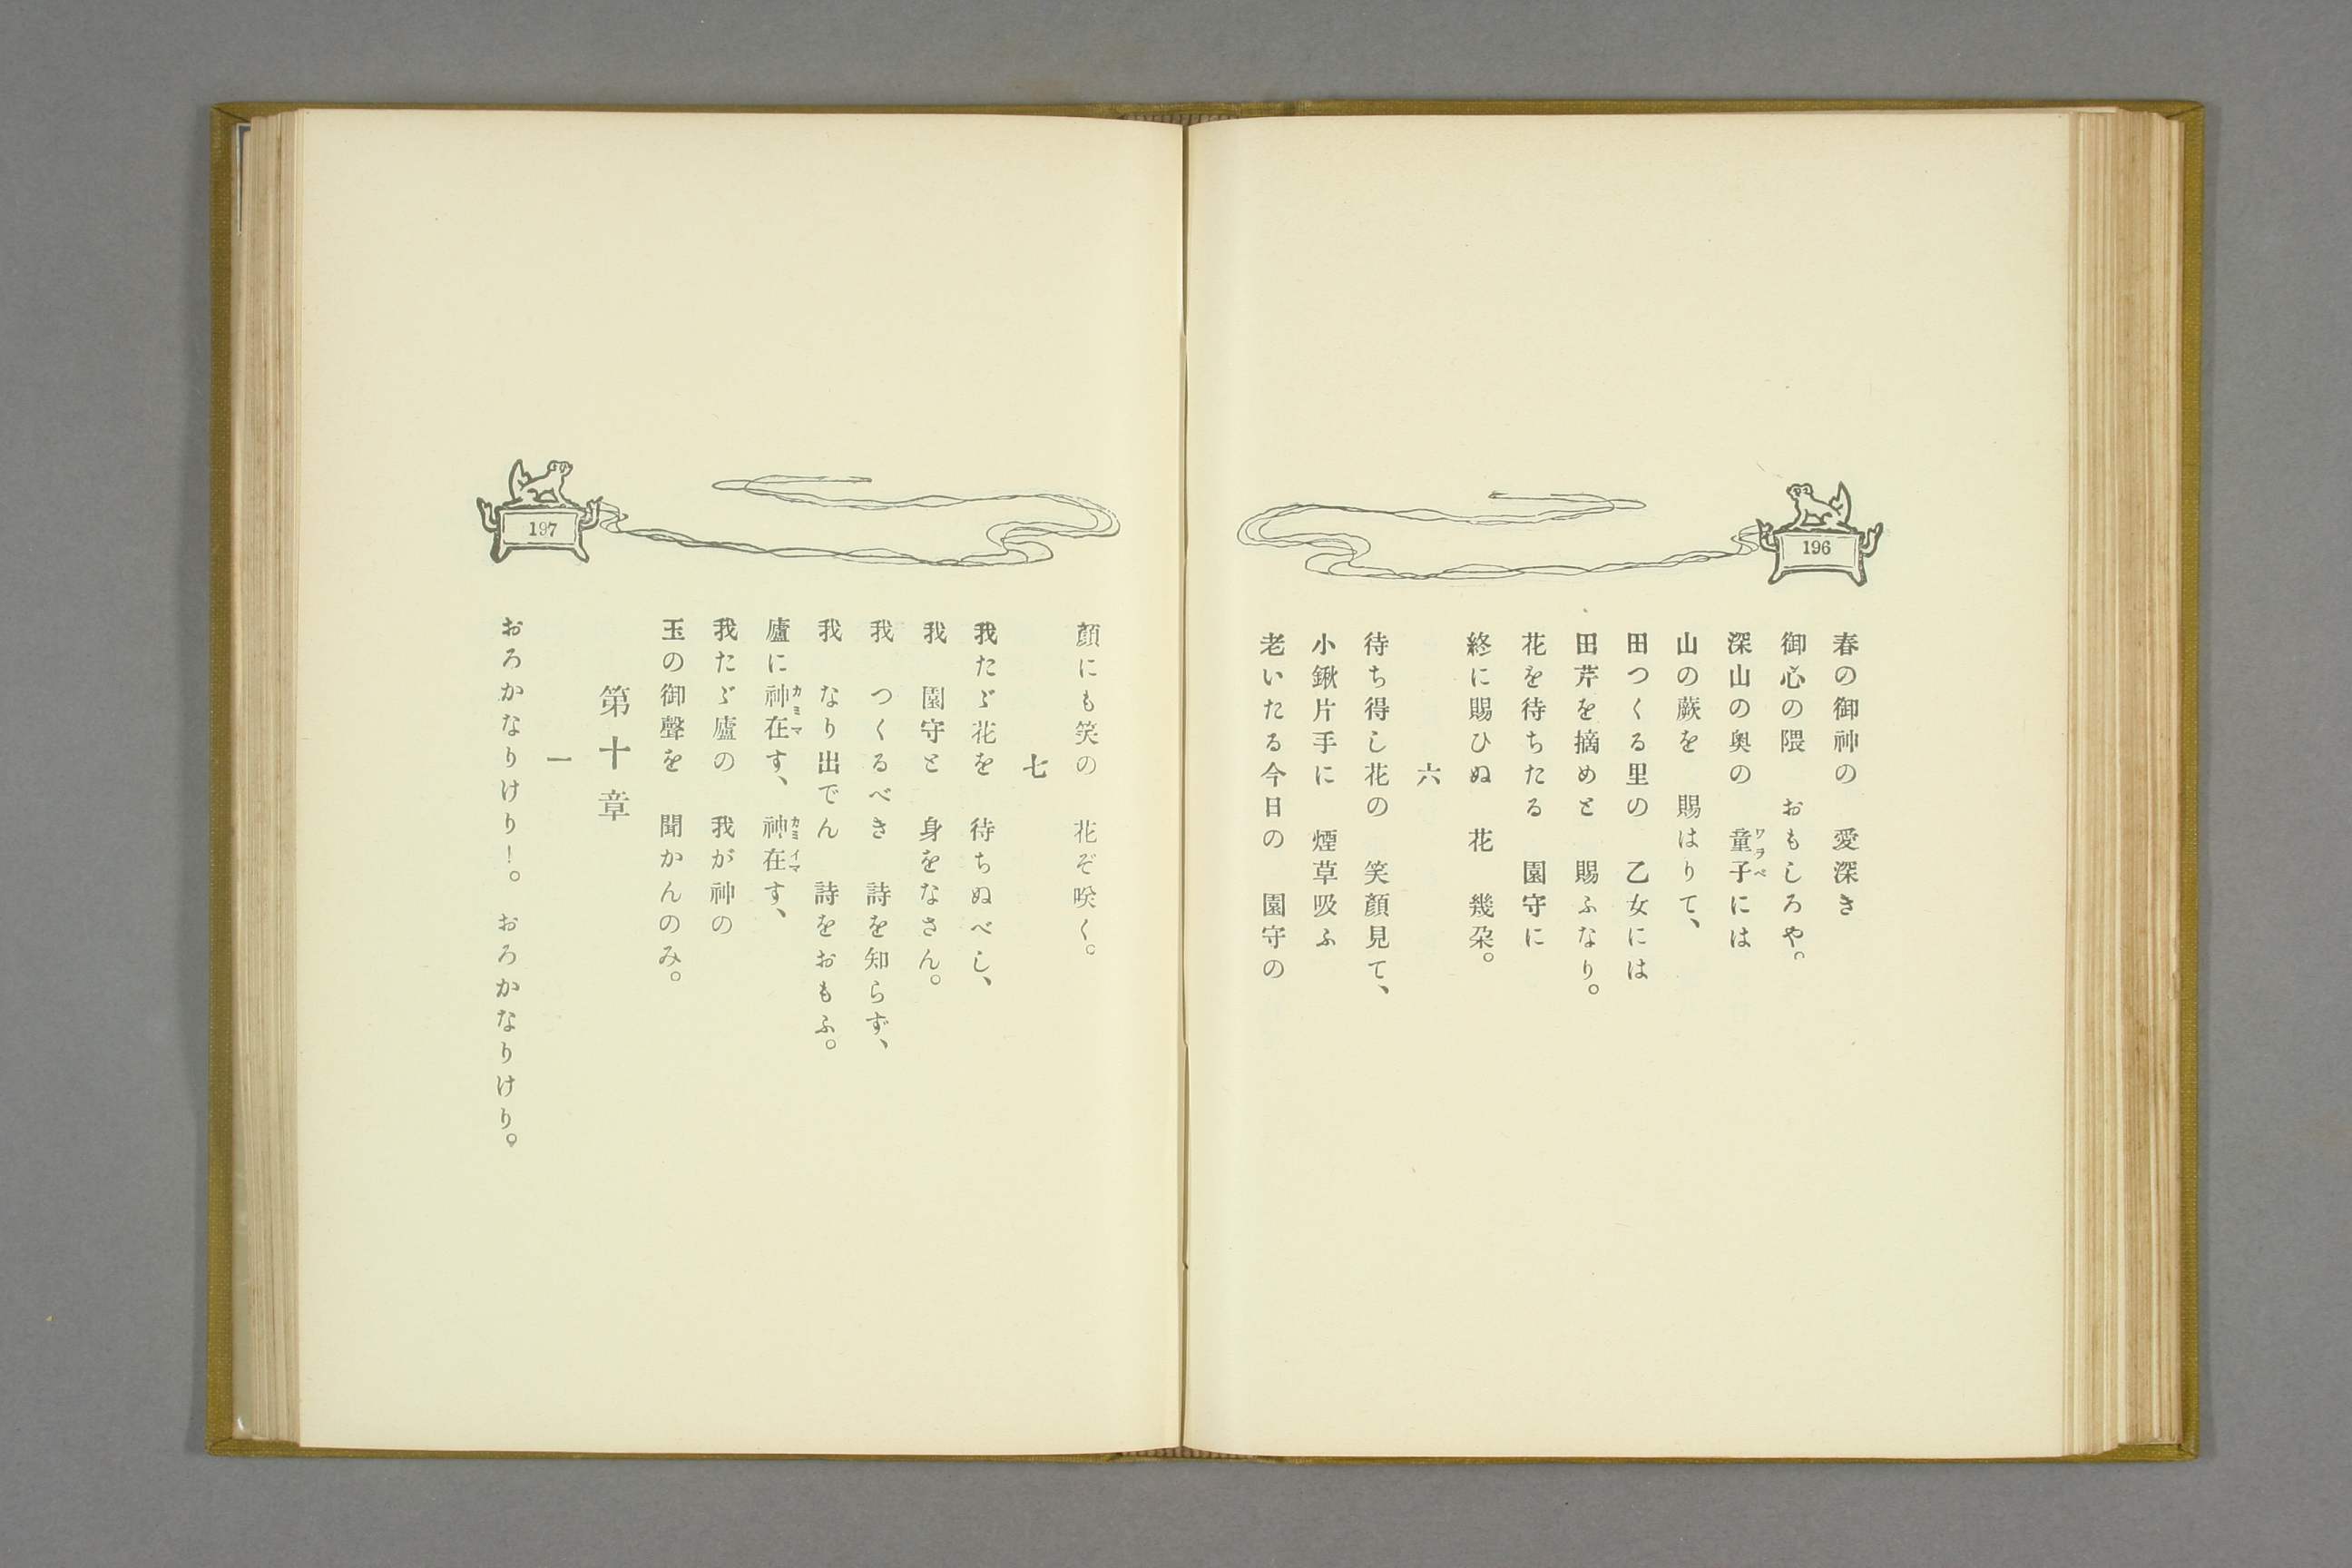 196
春の御神の　愛深き
御心の隈　おもしろや。
深山の奥の　童子には
ワラベ
山の蕨を　賜はりて、
田つくる里の　乙女には
田芹を摘めと　賜ふなり。
花を待ちたる　園守に
終に賜ひぬ　花　幾朶。
六
待ち得し花の　笑顔見て、
小鍬片手に　煙草吸ふ
老いたる今日の　園守の
197
顔にも笑の　花ぞ咲く。
七
我たゞ花を　待ちぬべし、
我　園守と　身をなさん。
我　つくるべき　詩を知らず、
我　なり出でん　詩をおもふ。
廬に神在す、神在す、
カミマ　カミイマ
我たゞ廬の　我が神の
玉の御聲を　聞かんのみ。
第十章
一
おろかなりけり！。おろかなりけり。